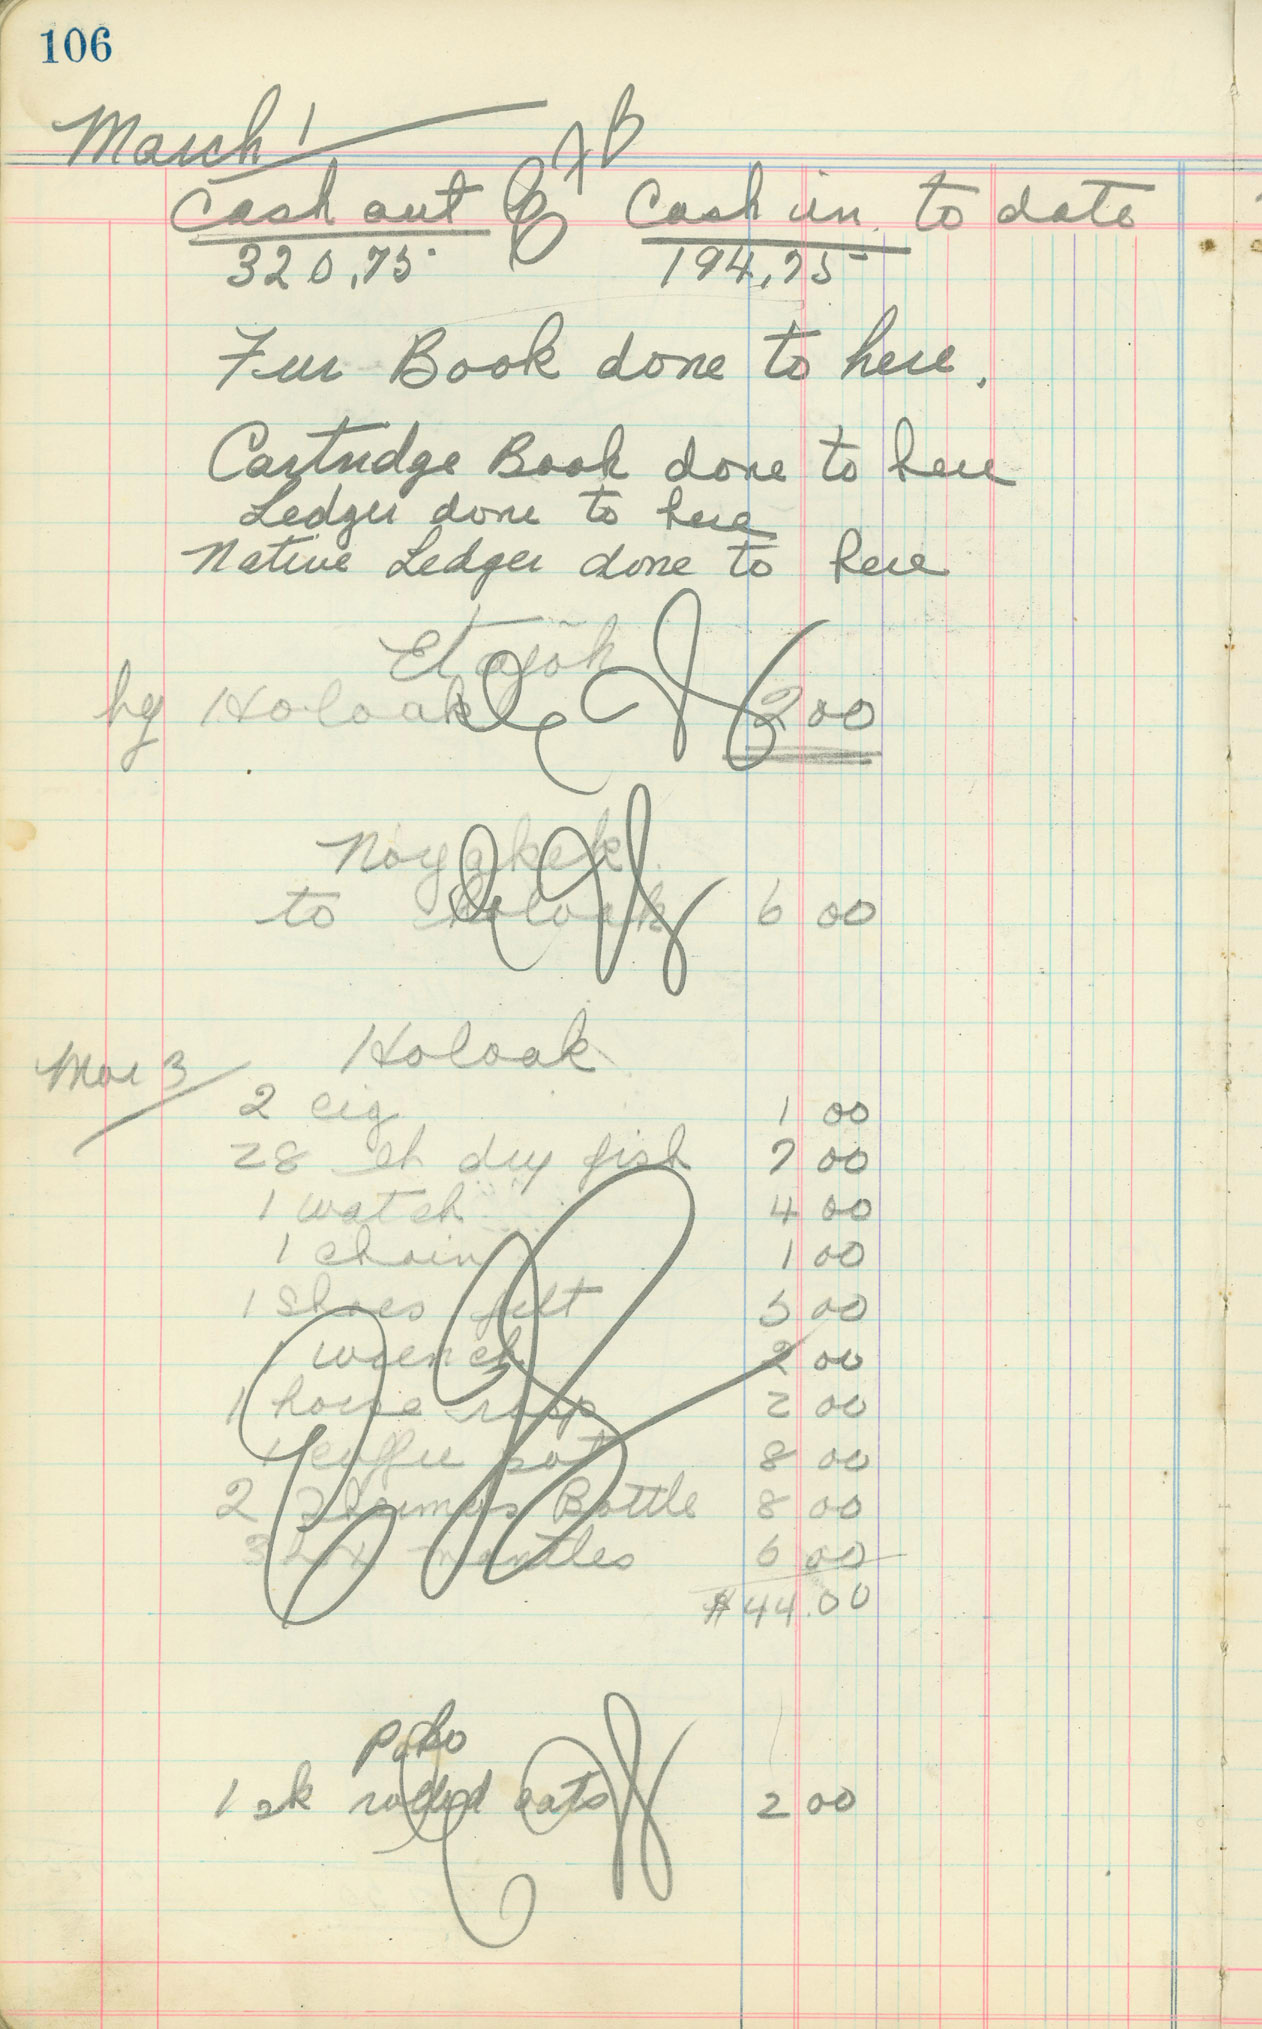 106
March 1
Cash out & Cash in to date
320.75 194.75
Fur Book done to here.
Cartridge Book done to here
Ledger done to here
Native Ledger done to here
Etajok
by Holoak 2 00
Noyakek
to Holoak 6 00
Mar 3 Holoak
2 cig 1 00
28 lb dry fish 7 00
1 watch 4 00
1 chain 1 00
1 Shoes felt 5 00
1 wrench 2 00
1 horse rasp 2 00
1 coffee pot 8 00
2 Thermos Bottle 8 00
3 mantles 6 00
$44.00
Poko
1 sk rolled oats 2 00